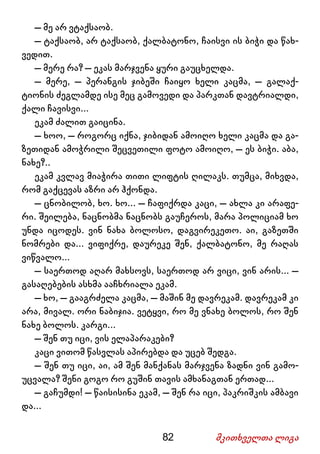 — მე არ ვტაქსაობ.
— ტაქსაობ, არ ტაქსაობ, ქალბატონო, ჩაისვი ის ბიჭი და წახ-
ვედით.
— მერე რა? — ეკას მარჯვენა ყური გაუცხელდა.
— მერე, — პერანგის ჯიბეში ჩაიყო ხელი კაცმა, — გალაქ-
ტიონის ძეგლამდე ისე მეც გამოვედი და პარკთან დავტრიალდი,
ქალი ჩავისვი...
ეკამ ძალით გაიცინა.
— ხოო, — როგორც იქნა, ჯიბიდან ამოიღო ხელი კაცმა და გა-
ზეთიდან ამოჭრილი შეცვეთილი ფოტო ამოიღო, — ეს ბიჭი. აბა,
ნახე?..
ეკამ კვლავ მიაჭირა თითი ლიფტის ღილაკს. თუმცა, მიხვდა,
რომ გაქცევას აზრი არ ჰქონდა.
— ცნობილობ, ხო. ხო... — ჩაფიქრდა კაცი, — ახლა კი არაფე-
რი. შეილება, ნაცნობმა ნაცნობს გაუჩეროს, მარა პოლიციამ ხო
უნდა იცოდეს. ვინ ნახა ბოლოსო, დაგვირეკეთო. აი, გაზეთში
ნომრები და... ვიფიქრე, დაურეკე შენ, ქალბატონო, მე რაღას
ვიწვალო...
— საერთოდ აღარ მახსოვს, საერთოდ არ ვიცი, ვინ არის... —
გასაღებების ასხმა ააჩხრიალა ეკამ.
— ხო, — გააგრძელა კაცმა, — მაშინ მე დავრეკამ. დავრეკამ კი
არა, მივალ. ორი ნაბიჯია. ვეტყვი, რო მე ვნახე ბოლოს, რო შენ
ნახე ბოლოს. კარგი...
— შენ თუ იცი, ვის ელაპარაკები?
კაცი ვითომ წასვლას აპირებდა და უცებ შედგა.
— შენ თუ იცი, აი, ამ შენ მანქანას მარჯვენა ზადნი ვინ გამო-
უცვალა? შენი გოგო რო გუშინ თავის ამხანაგთან ერთად...
— გაჩუმდი! — წაისისინა ეკამ, — შენ რა იცი, პაკრიშკის ამბავი
და...
82 მკითხველთა ლიგა